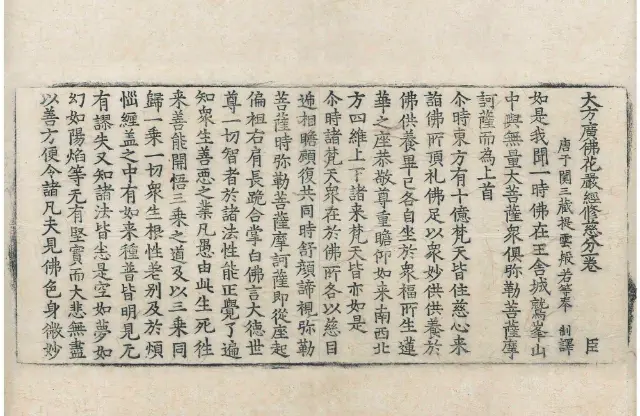 大方廣佛花嚴經修慈分一卷 臣
唐于闐三藏提雲般若等奉 制譯
如是我聞一時佛在王舍城鷲峯山
中與無量大菩薩衆俱弥勒菩薩摩
訶薩而為上首
尒時東方有十億梵天皆住慈心来
詣佛所頂礼佛足以衆妙供供養於
佛供養畢已各自坐於衆福所生蓮
華之座恭敬尊重瞻仰如来南西北
方四維上下諸来梵天皆亦如是
尒時諸梵天衆在於佛所各以慈目
遞相瞻顧復共同時舒顔諦視弥勒
菩薩時弥勒菩薩摩訶薩即從座起
偏袒右肩長跪合掌白佛言大德世
尊一切智者於諸法性能正覺了遍
知衆生善惡之業凡愚由此生死徃
来善能開悟三乗之道及以三乗同
歸一乗一切衆生根性差别及於煩
惱纏盖之中有如来種普皆明見无
有謬失又知諸法皆悉是空如夢如
幻如陽焰等无有堅實而大悲無盡
以善方便令諸凡夫見佛色身微妙